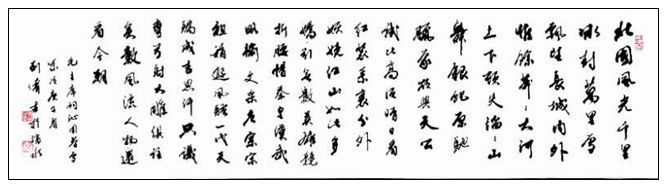 北國風光千里
冰封萬里雪
飄望長城内外
惟餘莽々大河
上下頓失滔々山
舞銀蛇原馳
蠟象欲與天公
試比高須晴日看
紅裝素裹分外
妖嬈江山如此多
嬌引無數英雄競
折腰惜秦皇漢武
略輸文采唐宗宋
祖稍遜風騷一代天
驕成吉思汗只識
彎弓射大雕俱往
矣數風流人物還
看今朝
毛主席詞沁園春雪